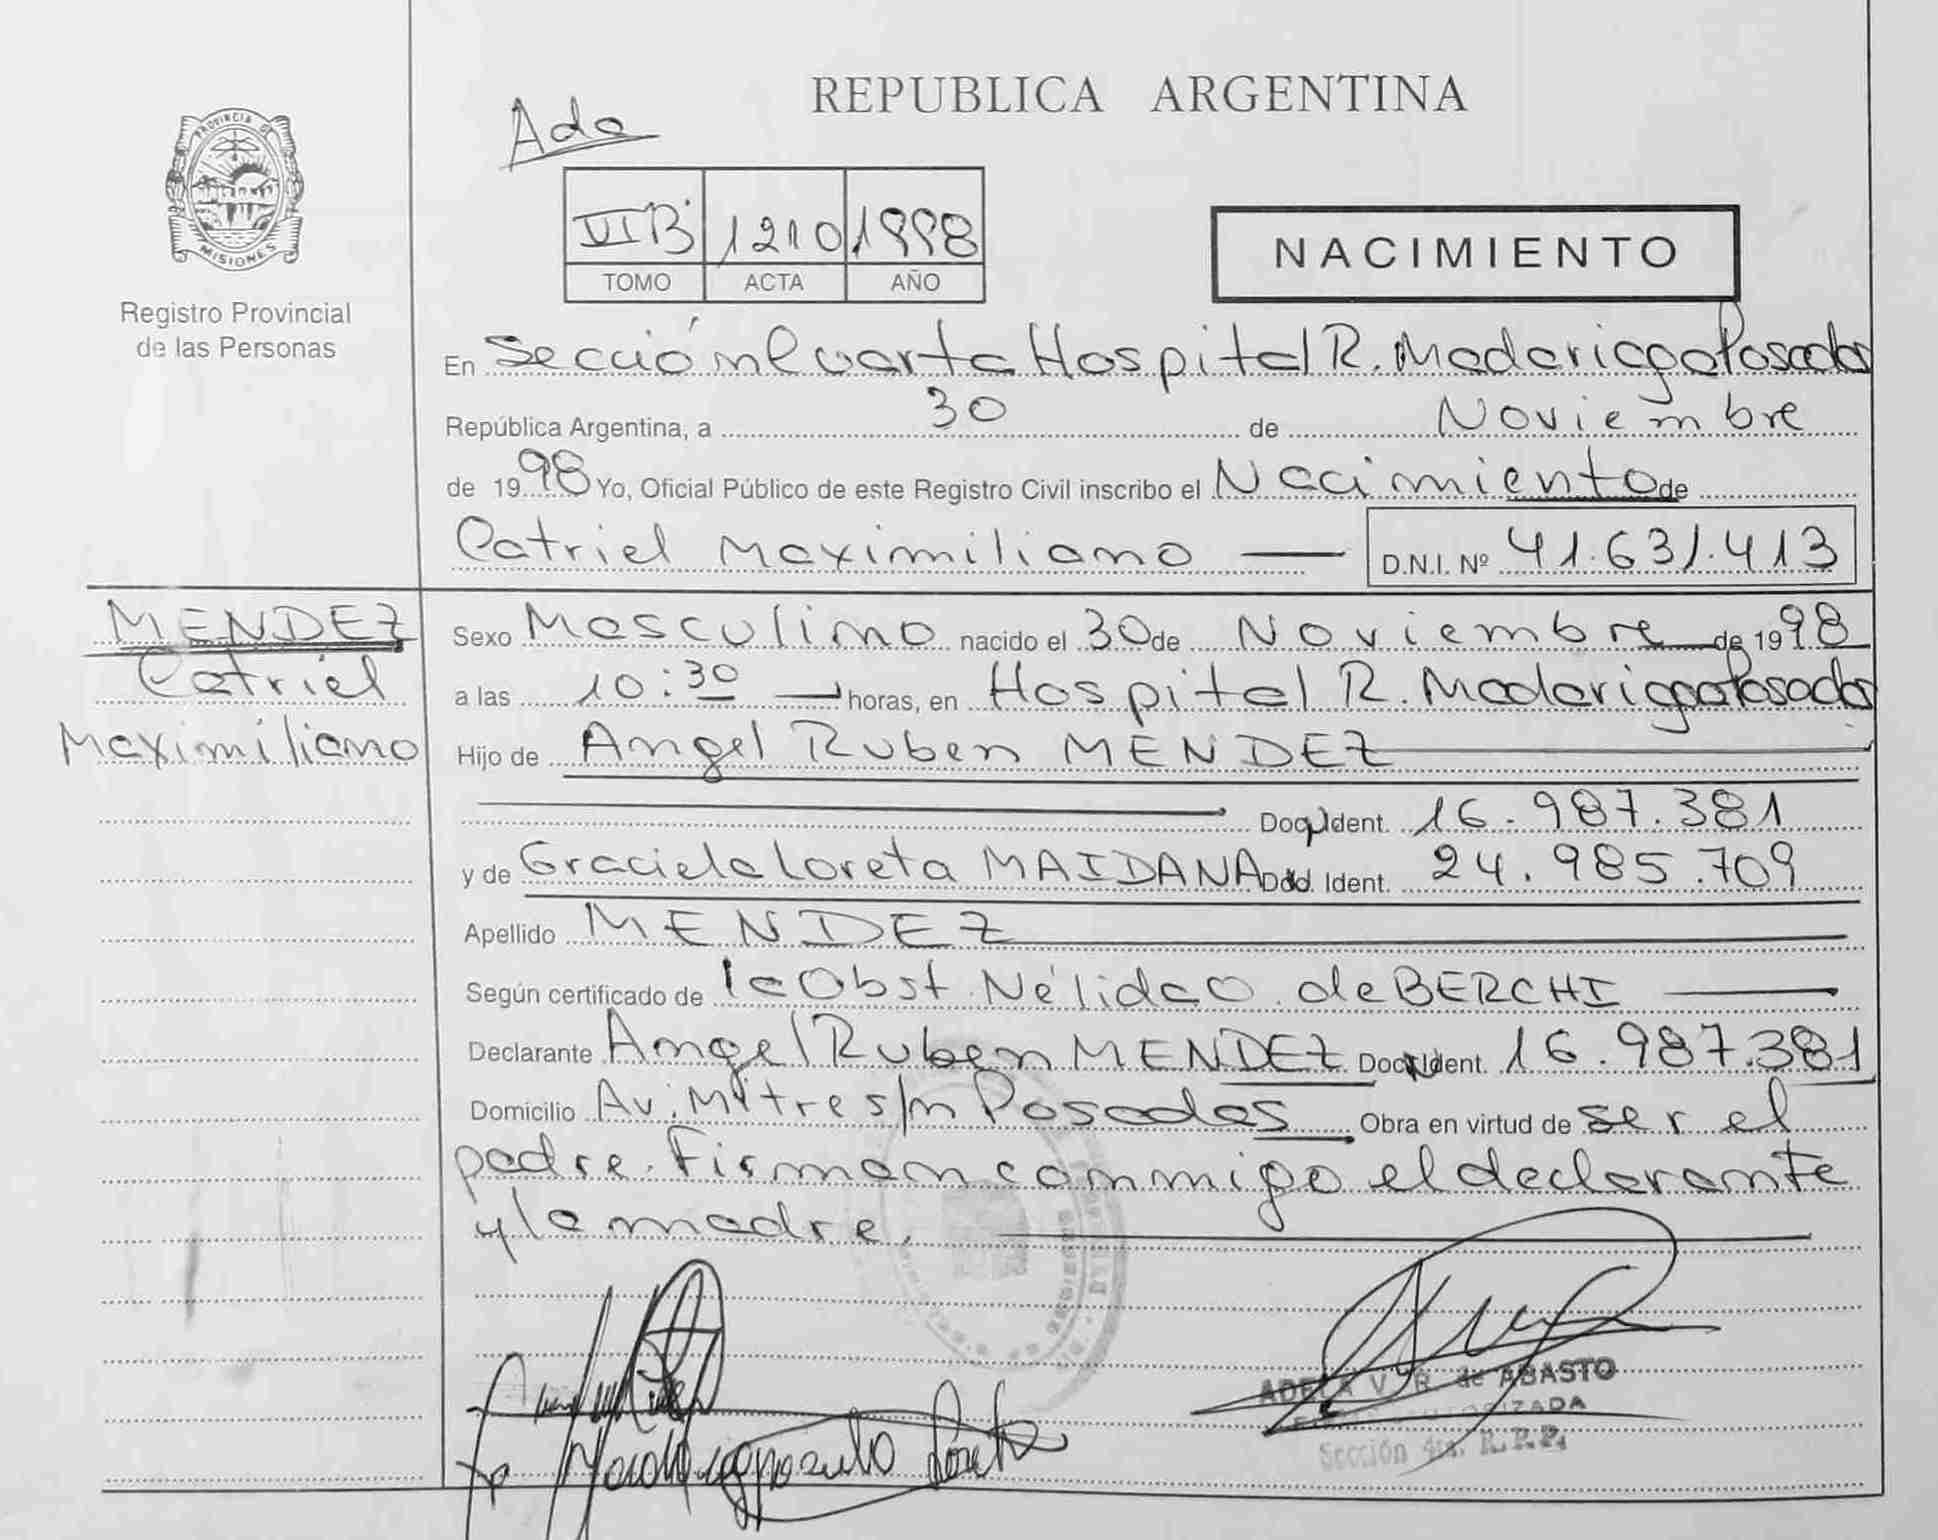 PROVINCIA DE
MISIONES
Registro Provincial
de las Personas
REPUBLICA ARGENTINA
Ada
VI B 1210 1998
TOMO ACTA AÑO
NACIMIENTO
En Sección Cuarta Hospital R. Madariaga Posadas
República Argentina, a 30 de Noviembre
de 1998 Yo, Oficial Público de este Registro Civil inscribo el Nacimiento de
Catriel Maximiliano D.N.I. Nº 41.631.413
MENDEZ
Catriel
Maximiliano
Sexo Masculino nacido el 30 de Noviembre de 1998
a las 10:30 horas, en Hospital R. Madariaga Posadas
Hijo de Angel Ruben MENDEZ
Doc. Ident. 16.987.381
y de Graciela Loreta MAIDANA Doc. Ident. 24.985.709
Apellido MENDEZ
Según certificado de la Obst. Nélida O. de BERCHI
Declarante Angel Ruben MENDEZ Doc. Ident. 16.987.381
Domicilio Av. Mitre s/n Posadas Obra en virtud de ser el
padre. Firman conmigo el declarante
y la madre.
ADELA V. R. de ABASTO
Sección 4ta. R.P.P.